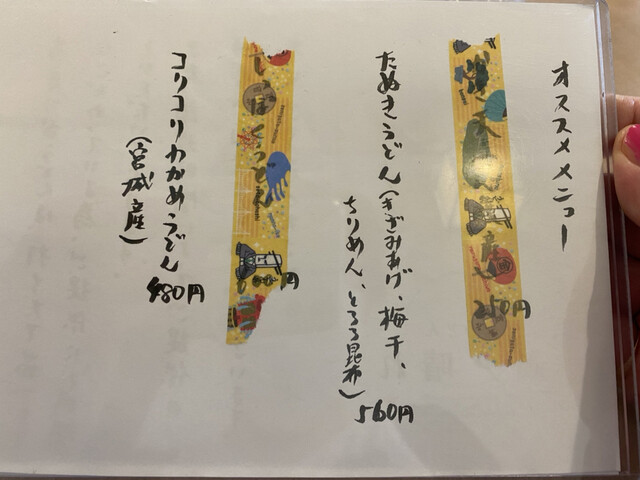 オススメメニュー
産
250円
たぬきうどん(きざみあげ、梅干、
ちりめん、とろろ昆布)
560円
しっぽくうどん
円
コリコリわかめうどん
(宮城産)
480円